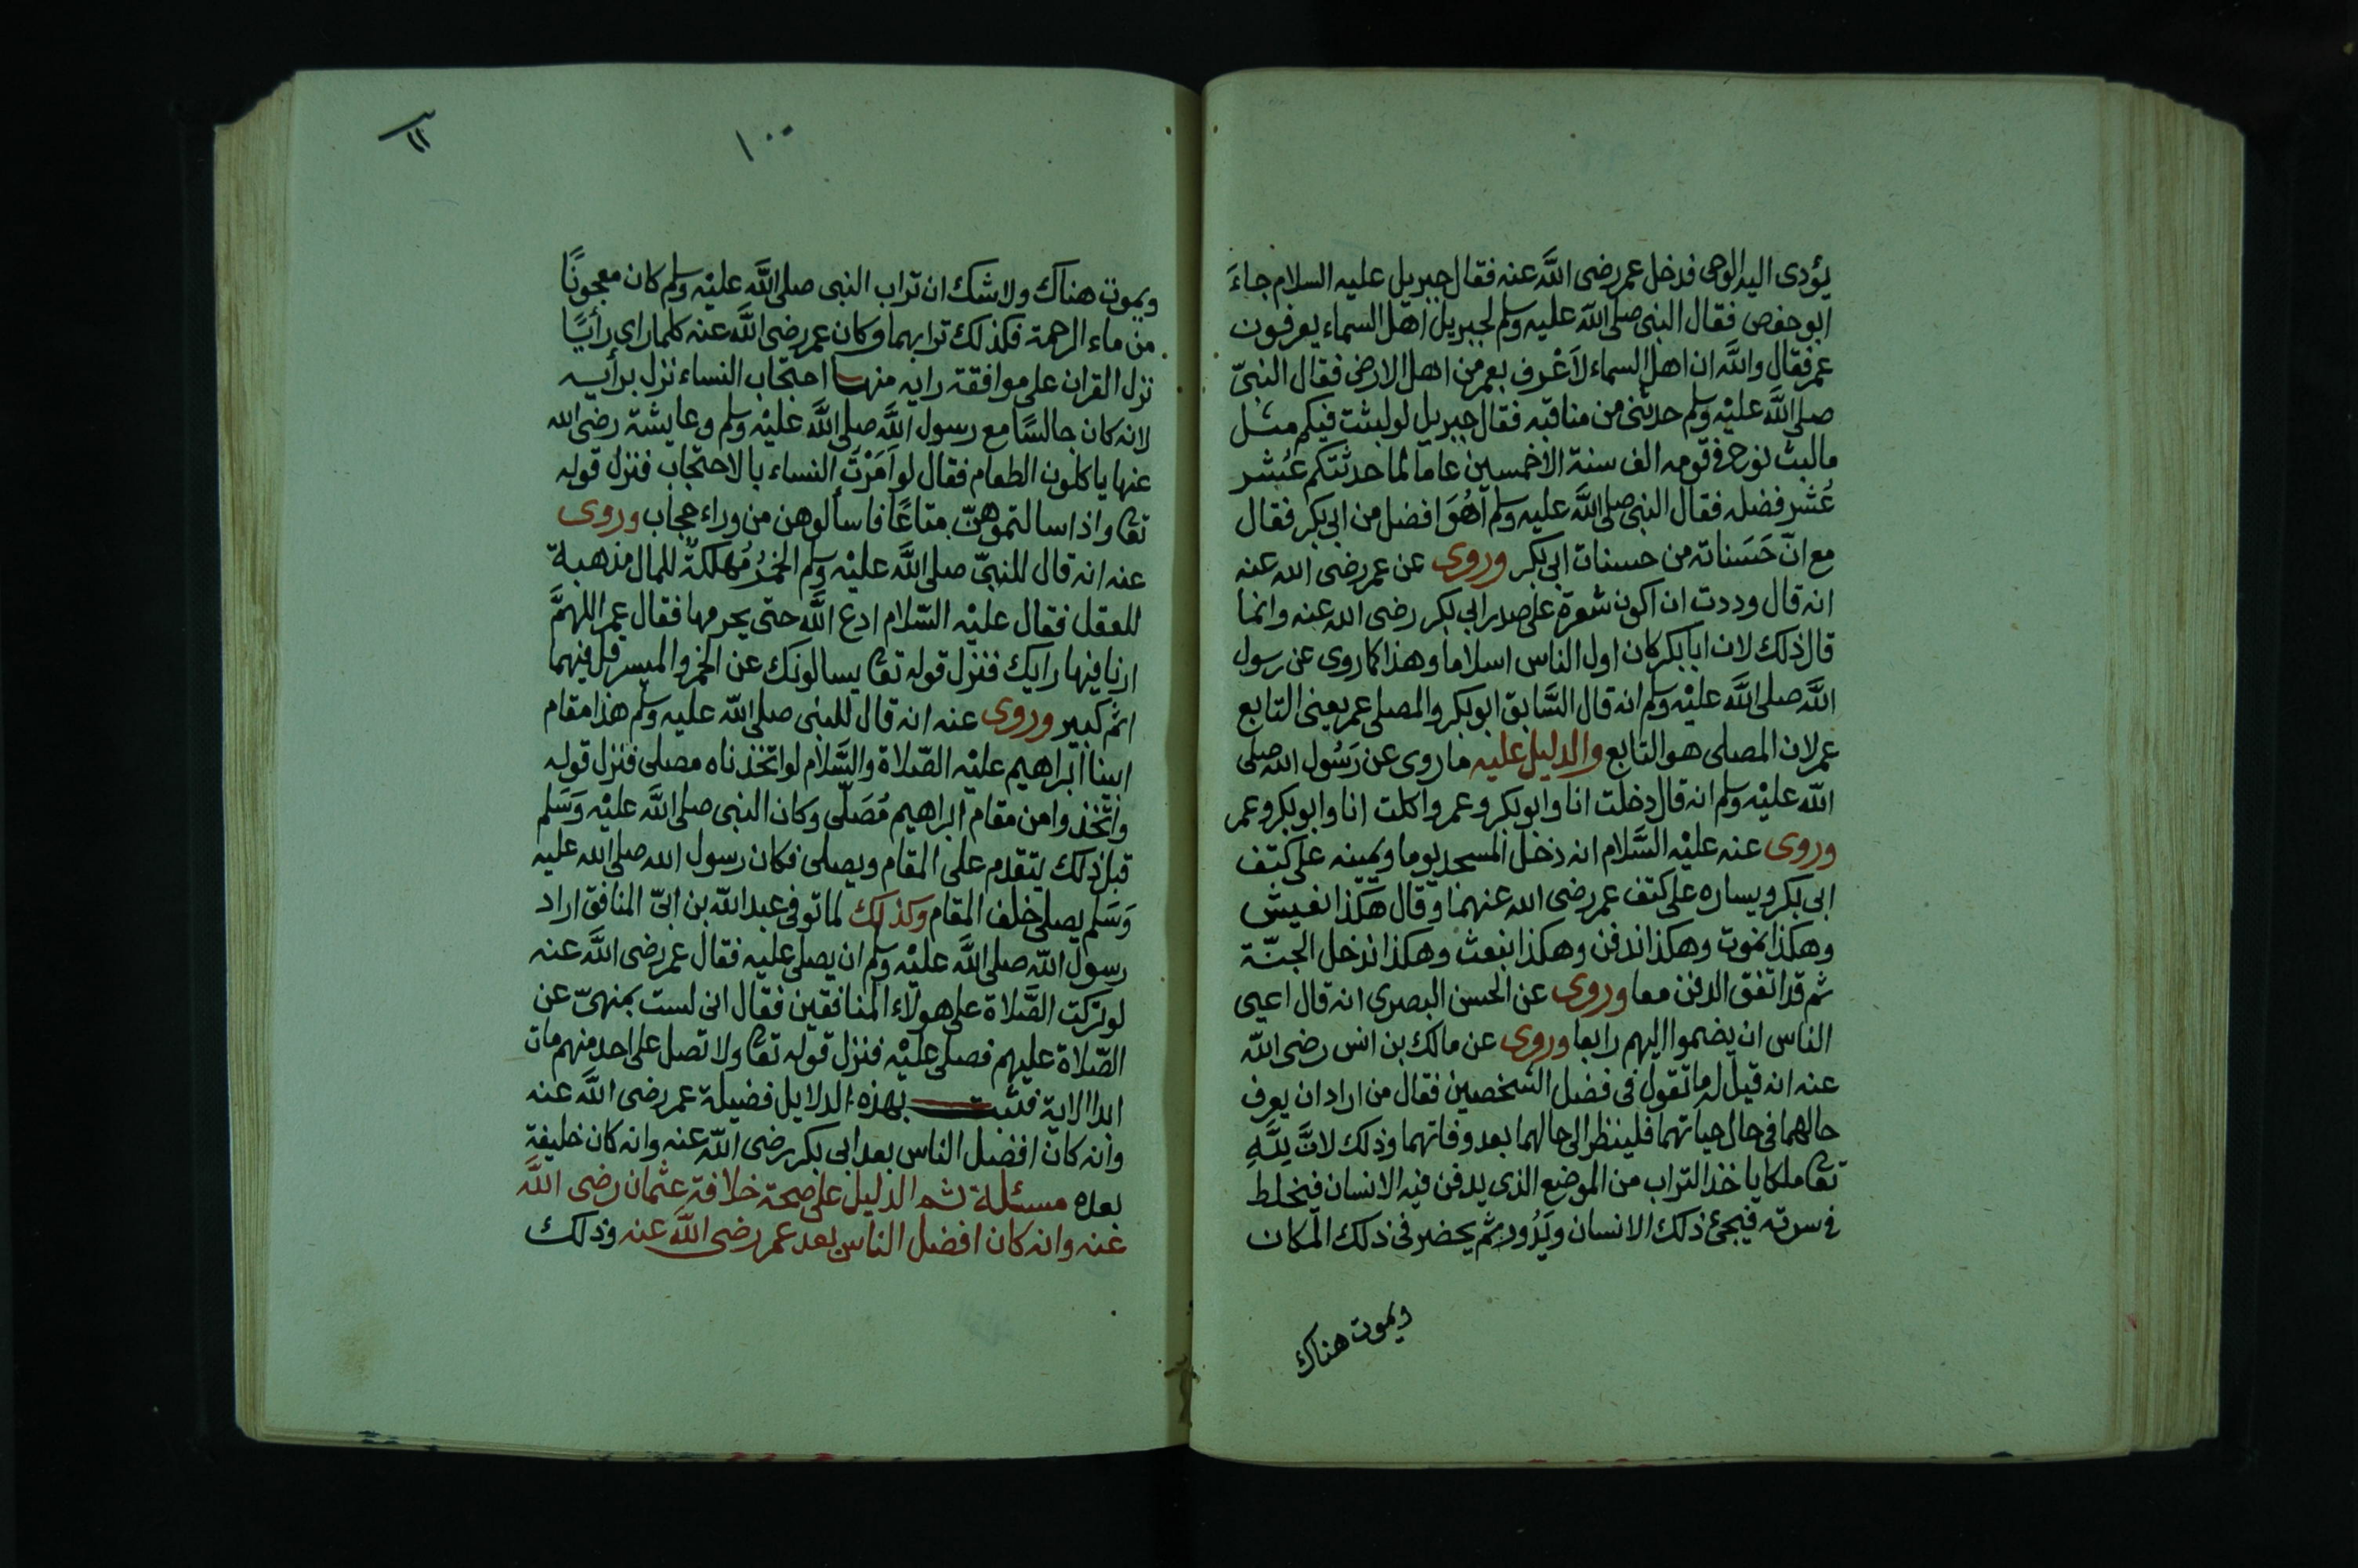 يؤدى اليه الوحى فدخل عمر رضى اللَّه عنه فقال جبريل عليه السلام جاءَ
ابو حفص فقال النبى صلى اللّه عليه وسلم لجبريل اهل السماء يعرفون
عمر فقال واللَّه ان اهل السماء لاَعْرف بعمر من اهل الارض فقال النبىّ
صلى اللَّه عليْه وسلم حدثنى من مناقبه فقال جبريل لو لبثت فيكم مثل
ما لبث نوح فى قومه الف سنة الا خمسين عاما لما حدثتكم عُشر
عُشر فضله فقال النبى صلى اللَّه عليه وسلم اهُوَ افضل من ابى بكر فقال
مع انّ حَسَناته من حسنات ابى بكر وروى عن عمر رضى الله عنه
انه قال وددت ان اكون شعرة على صدر ابى بكر رضى الله عنه وانما
قال ذلك لان ابا بكر كان اول الناس اسلاما وهذا كما روى عن رسول
اللَّه صلى اللَّه عليْه وسلم انه قال السَّابق ابو بكر والمصلى عمر يعنى التابع
عمر لان المصلى هو التابع والدليل عليه ما روى عن رَسُول الله صلى
اللّه عليْه وسلم انه قال دخلت انا وابو بكر وعمر واكلت انا وابو بكر وعمر
وروى عنه عليْه السَّلام انه دخل المسجد يوما ويمينه على كتف
ابى بكر ويساره على كتف عمر رضى الله عنهما وقال هكذا نعيش
وهكذا نموت وهكذا ندفن وهكذا نبعث وهكذا ندخل الجنّة
ثم قد اتفق الدفن معا وروى عن الحسن البصرى انه قال اعيى
الناس ان يضموا اليهم رابعا وروى عن مالك بن انس رضى اللّه
عنه انه قيل له ما تقول فى فضل الشخصين فقال من اراد ان يعرف
حالهما فى حال حياتهما فلينظر الى حالهما بعد وفاتهما وذلك لانَّ للَّهِ
تعا ملكا ياخذ التراب من الموضع الذى يدفن فيه الانسان فيخلط
فى سرته فيجئ ذلك الانسان ويَدُور ثم يحضر فى ذلك المكان
ويموت هناك
١٠٠
١١
ويموت هناك ولا شك ان تراب النبى صلى اللَّه عليْه وسلم كان معجونًا
من ماء الرحمة فكذلك ترابهما وكان عمر رضى اللَّه عنه كلما راى رأيًا
نزل القران على موافقة رايه منها احتجاب النساء نزل برأيه
لانه كان جالسًا مع رسول اللَّه صلى اللَّه عليْه وسلم وعايشة رضى الله
عنها ياكلون الطعام فقال لو اَمَرْتَ النساء بالاحتجاب فنزل قوله
تعا واذا سالتموهنّ متاعًا فاسألوهن من وراء حجاب وروى
عنه انه قال للنبىّ صلى اللَّه عليْه وسلم الخمْرُ مُهلكةٌ للمال مذهبة
للعقل فقال عليْه السّلام ادع اللَّه حتى يحرمها فقال عمر اللهمَّ
ارنا فيها رايك فنزل قوله تعا يسالونك عن الخمر والميسر قل فيهما
اثم كبير وروى عنه انه قال للنبى صلى اللّه عليه وسلم هذا مقام
ابينا ابراهيم عليْه الصّلاة والسَّلام لو اتخذناه مصلى فنزل قوله
واتّخذوا من مقام ابراهيم مُصَلّى وكان النبى صلى اللَّه عليْه وَسَلم
قبل ذلك يتقدم على المقام ويصلى فكان رسول الله صلى الله عليه
وَسَلم يصلى خلف المقام وكذلك لما توفى عبد اللّه بن ابىّ المنافق اراد
رسول اللّه صلى اللَّه عليْه وسلم ان يصلى عليه فقال عمر رضى اللَّه عنه
لو تركت الصَّلاة على هولاء المنافقين فقال انى لست بمنهىّ عن
الصّلاة عليهم فصلى عليْه فنزل قوله تعا ولا تصل على احد منهم مات
ابدا الاية فثبت بهذه الدلايل فضيلة عمر رضى اللَّه عنه
وانه كان افضل الناس بعد ابى بكر رضى اللّه عنه وانه كان خليفة
بعده مسئلة ثم الدليل على صحة خلافة عثمان رضى اللَّه
عنه وانه كان افضل الناس بعد عمر رضى اللَّه عنه وذلك